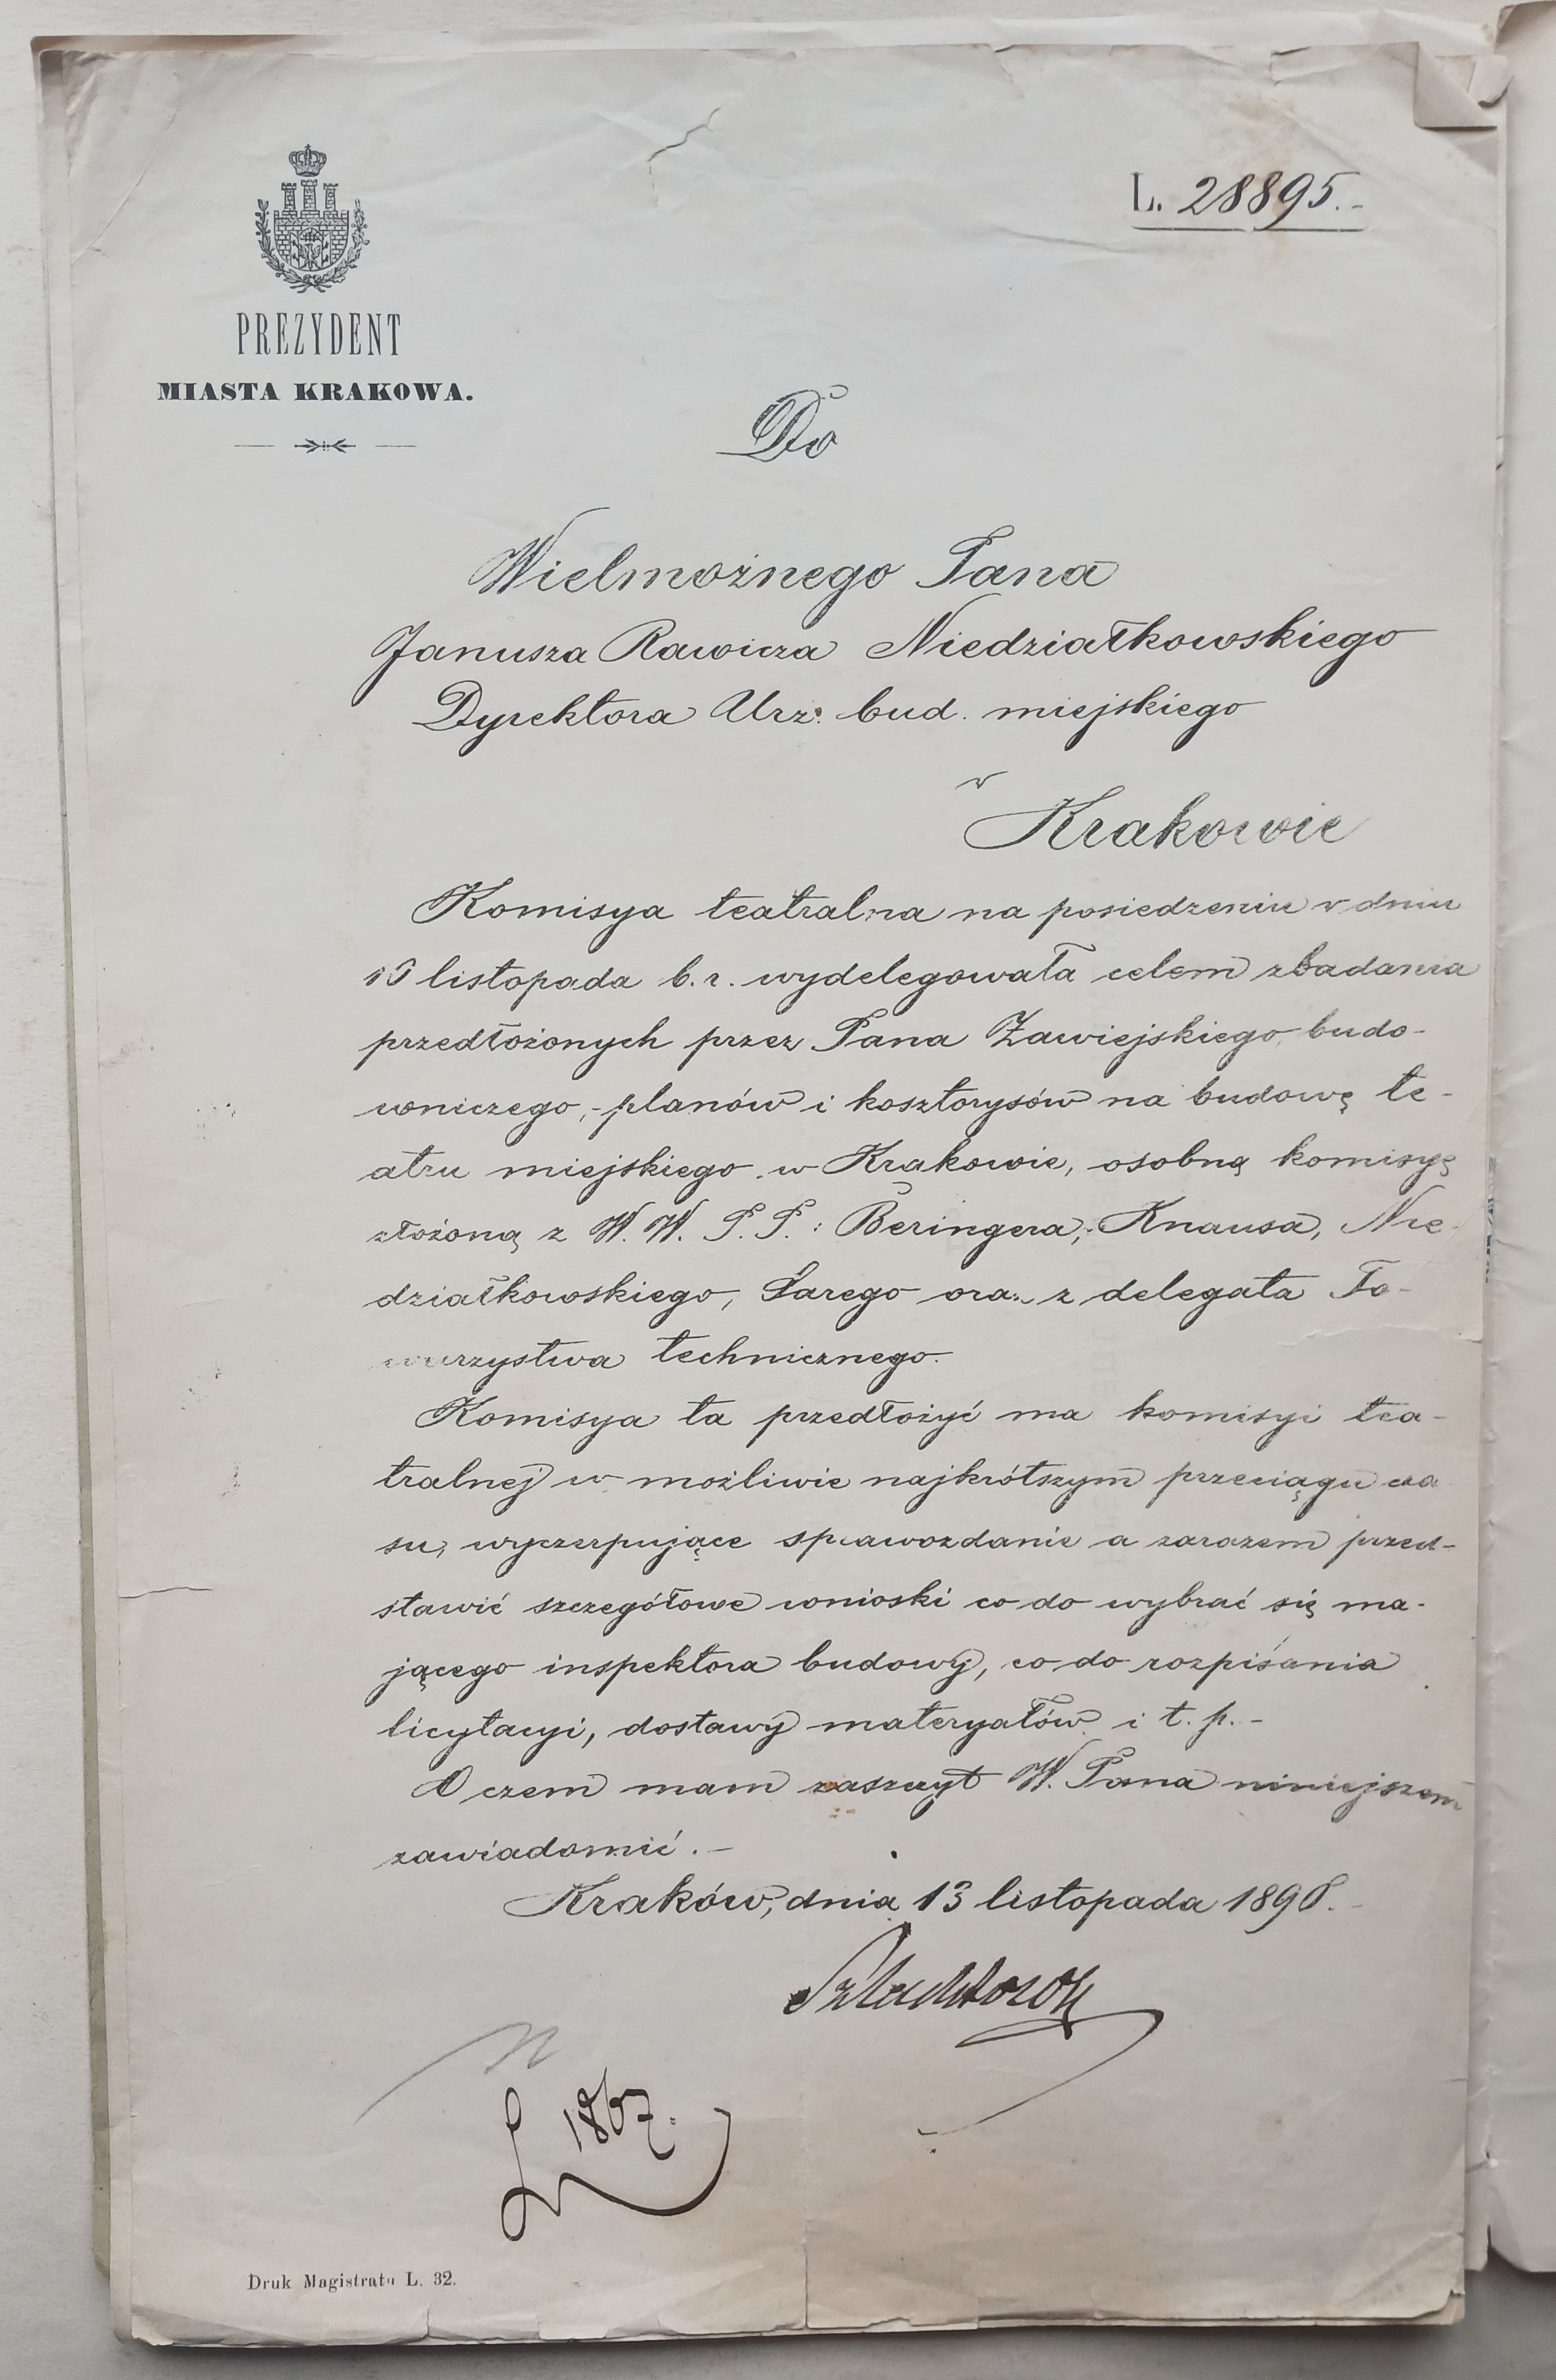 L. 28895.-
PREZYDENT
MIASTA KRAKOWA.
Do
Wielmożnego Pana
Janusza Rawicza Niedziałkowskiego
Dyrektora Urz. bud. miejskiego
w
Krakowie
Komisya teatralna na posiedzeniu w dniu
10 listopada b. r. wydelegowała celem zbadania
przedłożonych przez Pana Zawiejskiego, budo-
wniczego, - planów i kosztorysów na budowę te-
atru miejskiego w Krakowie, osobną komisyę
złożoną z W. W. P. P. : Beringera, Knausa, Nie-
działkowskiego, Sarego oraz z delegata To-
warzystwa technicznego.
Komisya ta przedłożyć ma komisyi tea-
tralnej w możliwie najkrótszym przeciągu cza
su, wyczerpujące sprawozdanie a zarazem przed-
stawić szczegółowe wnioski co do wybrać się ma-
jącego inspektora budowy, co do rozpisania
licytacyi, dostawy materyałów i t. p. -
O czem mam zaszczyt W. Pana niniejszem
zawiadomić. -
Kraków, dnia 13 listopada 1890.
Szlachtowski
L 1867.
Druk Magistratu L. 32.